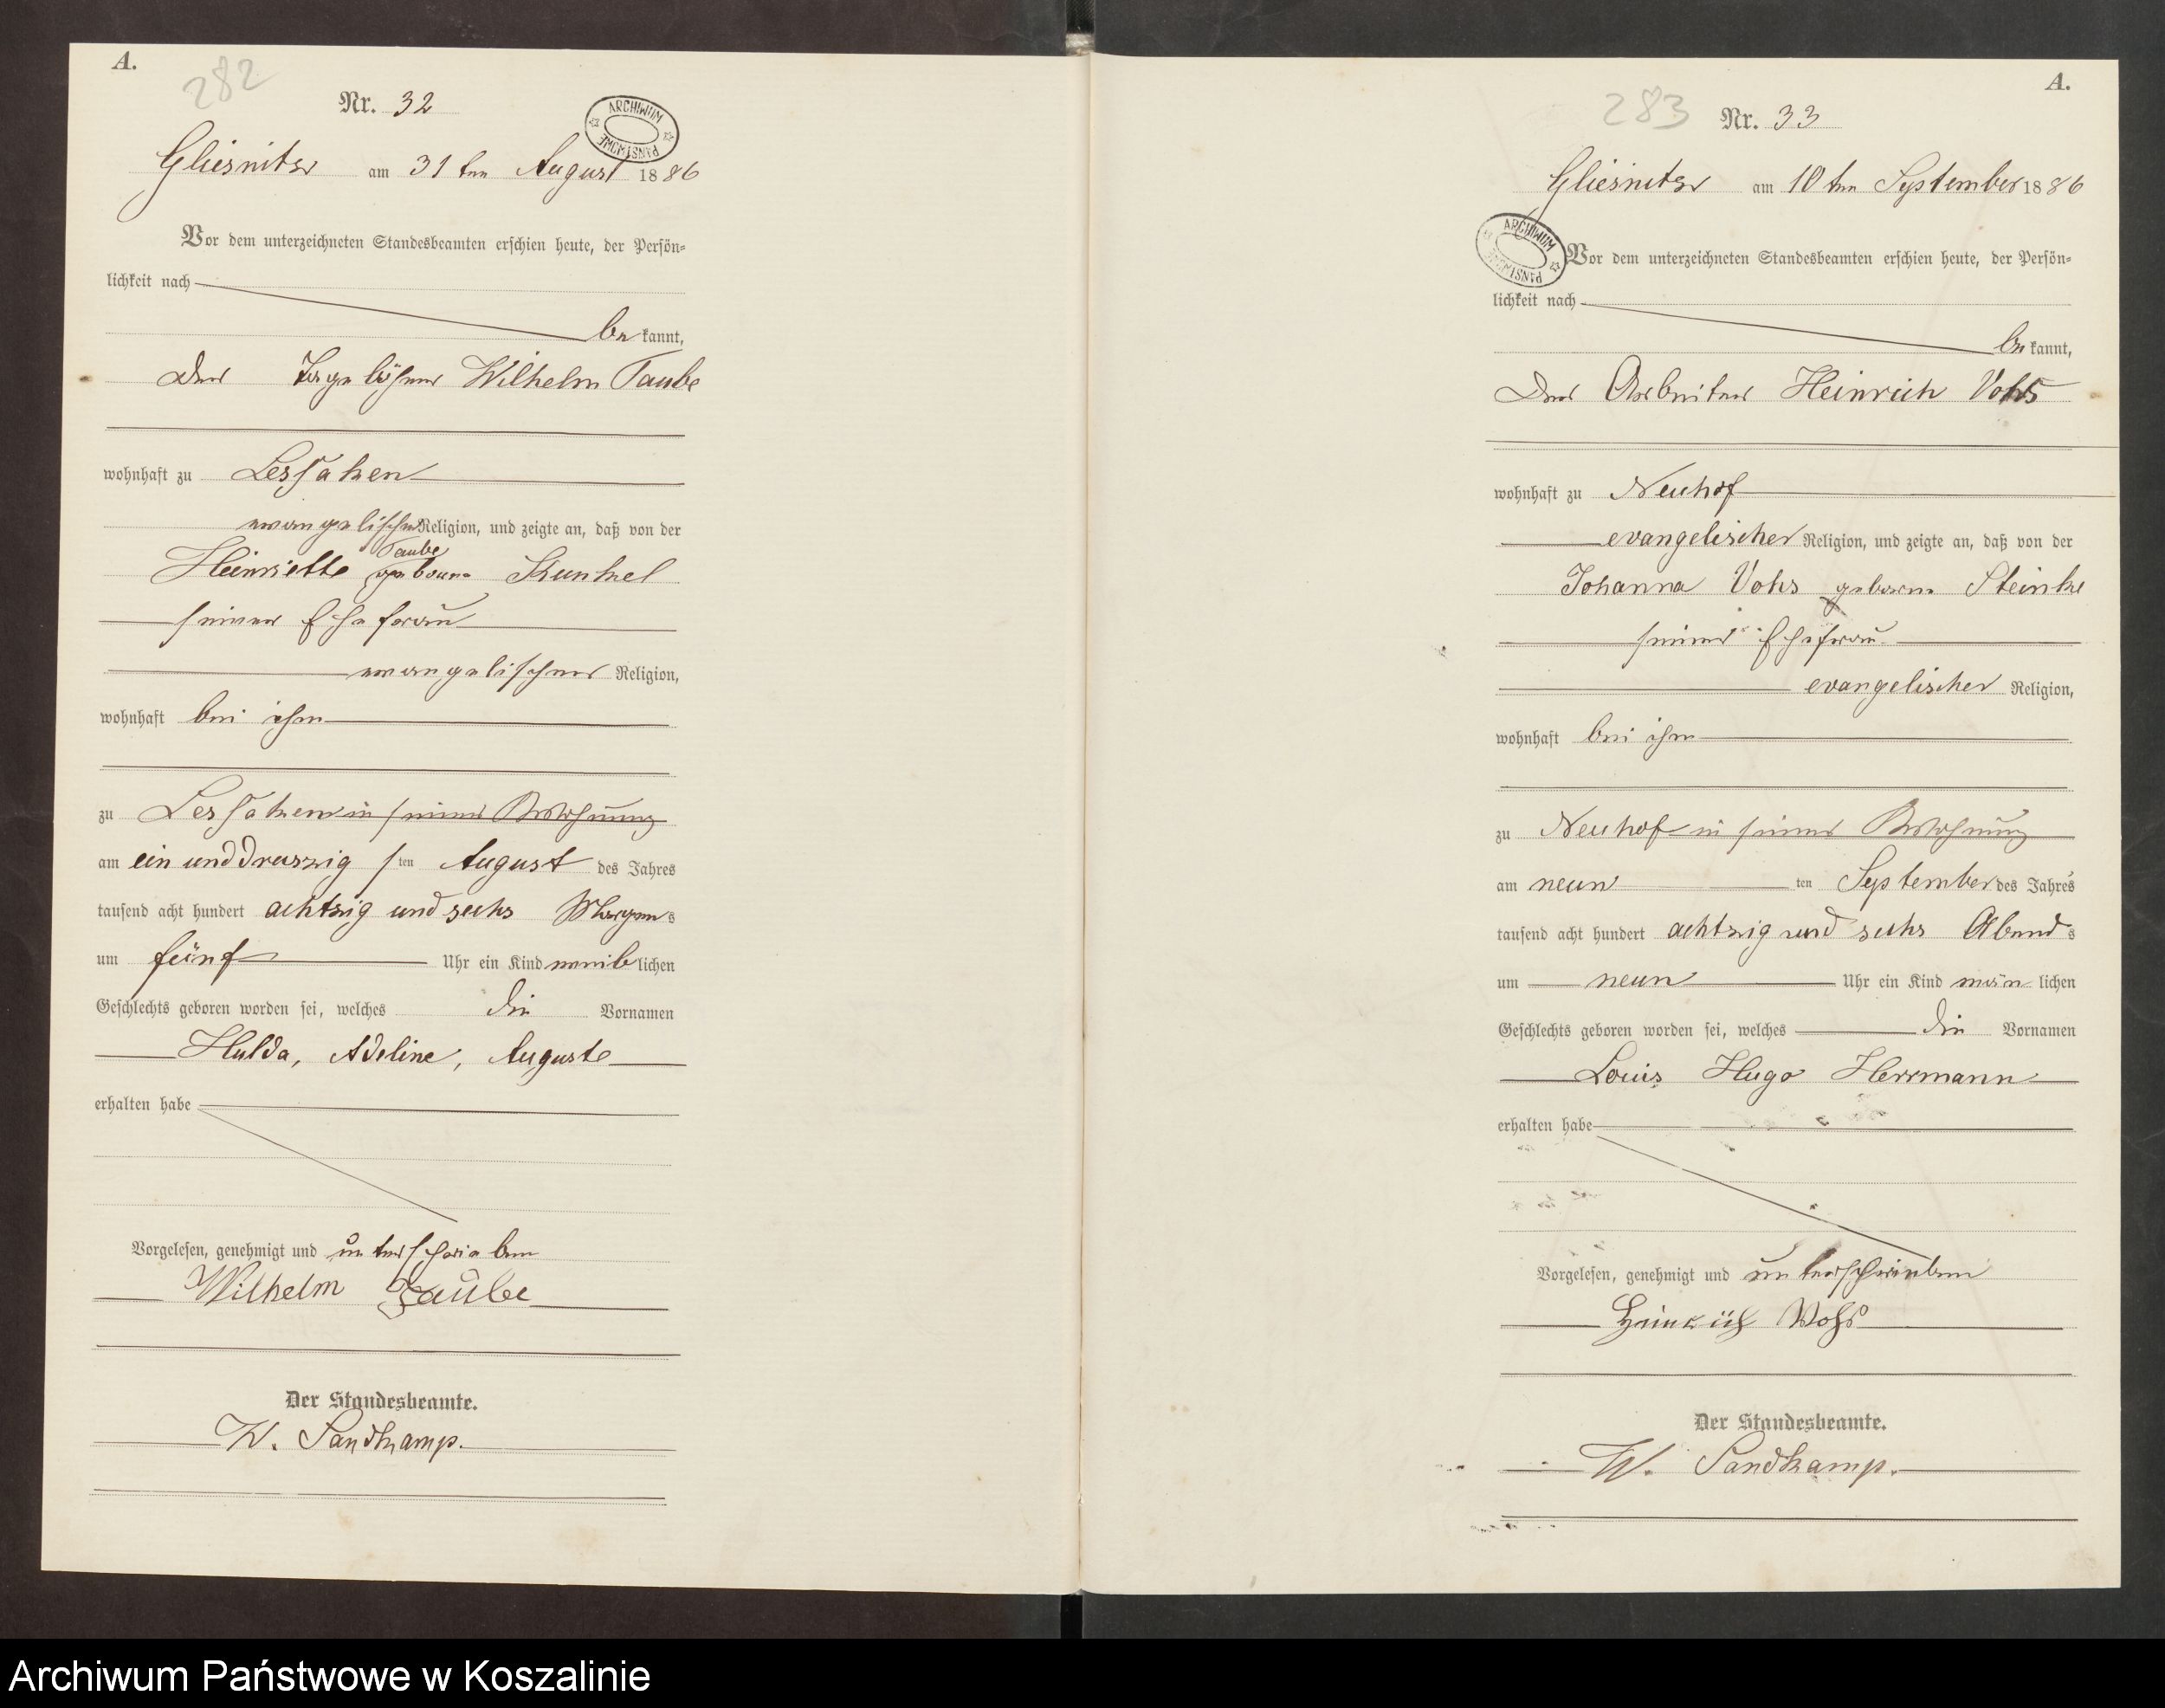 A.
282
Nr. 32
ARCHIWUM PAŃSTWOWE
Gliesnitz am 31ten August 1886
Vor dem unterzeichneten Standesbeamten erschien heute, der Persön-
lichkeit nach
bekannt,
der Tagelöhner Wilhelm Taube
wohnhaft zu Lessaken
evangelischer Religion, und zeigte an, daß von der
Taube
Heinriette geborne Kunkel
seiner Ehefrau
evangelischer Religion,
wohnhaft bei ihm
zu Lessaken in seiner Behausung
am ein und dreiszig sten August des Jahres
tausend acht hundert achtzig und sechs Morgens
um fünf Uhr ein Kind weiblichen
Geschlechts geboren worden sei, welches die Vornamen
Hulda, Adeline, Auguste
erhalten habe
Vorgelesen, genehmigt und unterschrieben
Wilhelm Taube
Der Standesbeamte.
W. Sandkamp.
A.
283
Nr. 33
Gliesnitz am 10ten September 1886
ARCHIWUM PAŃSTWOWE
Vor dem unterzeichneten Standesbeamten erschien heute, der Persön-
lichkeit nach
bekannt,
Der Arbeiter Heinrich Vohs
wohnhaft zu Neuhof
evangelischer Religion, und zeigte an, daß von der
Johanna Vohs geborne Steinke
seiner Ehefrau
evangelischer Religion,
wohnhaft bei ihm
zu Neuhof in seiner Behausung
am neun ten September des Jahres
tausend acht hundert achtzig und sechs Abends
um neun Uhr ein Kind mänlichen
Geschlechts geboren worden sei, welches die Vornamen
Louis Hugo Herrmann
erhalten habe
Vorgelesen, genehmigt und unterschrieben
Heinrich Vohs
Der Standesbeamte.
W. Sandkamp.
Archiwum Państwowe w Koszalinie